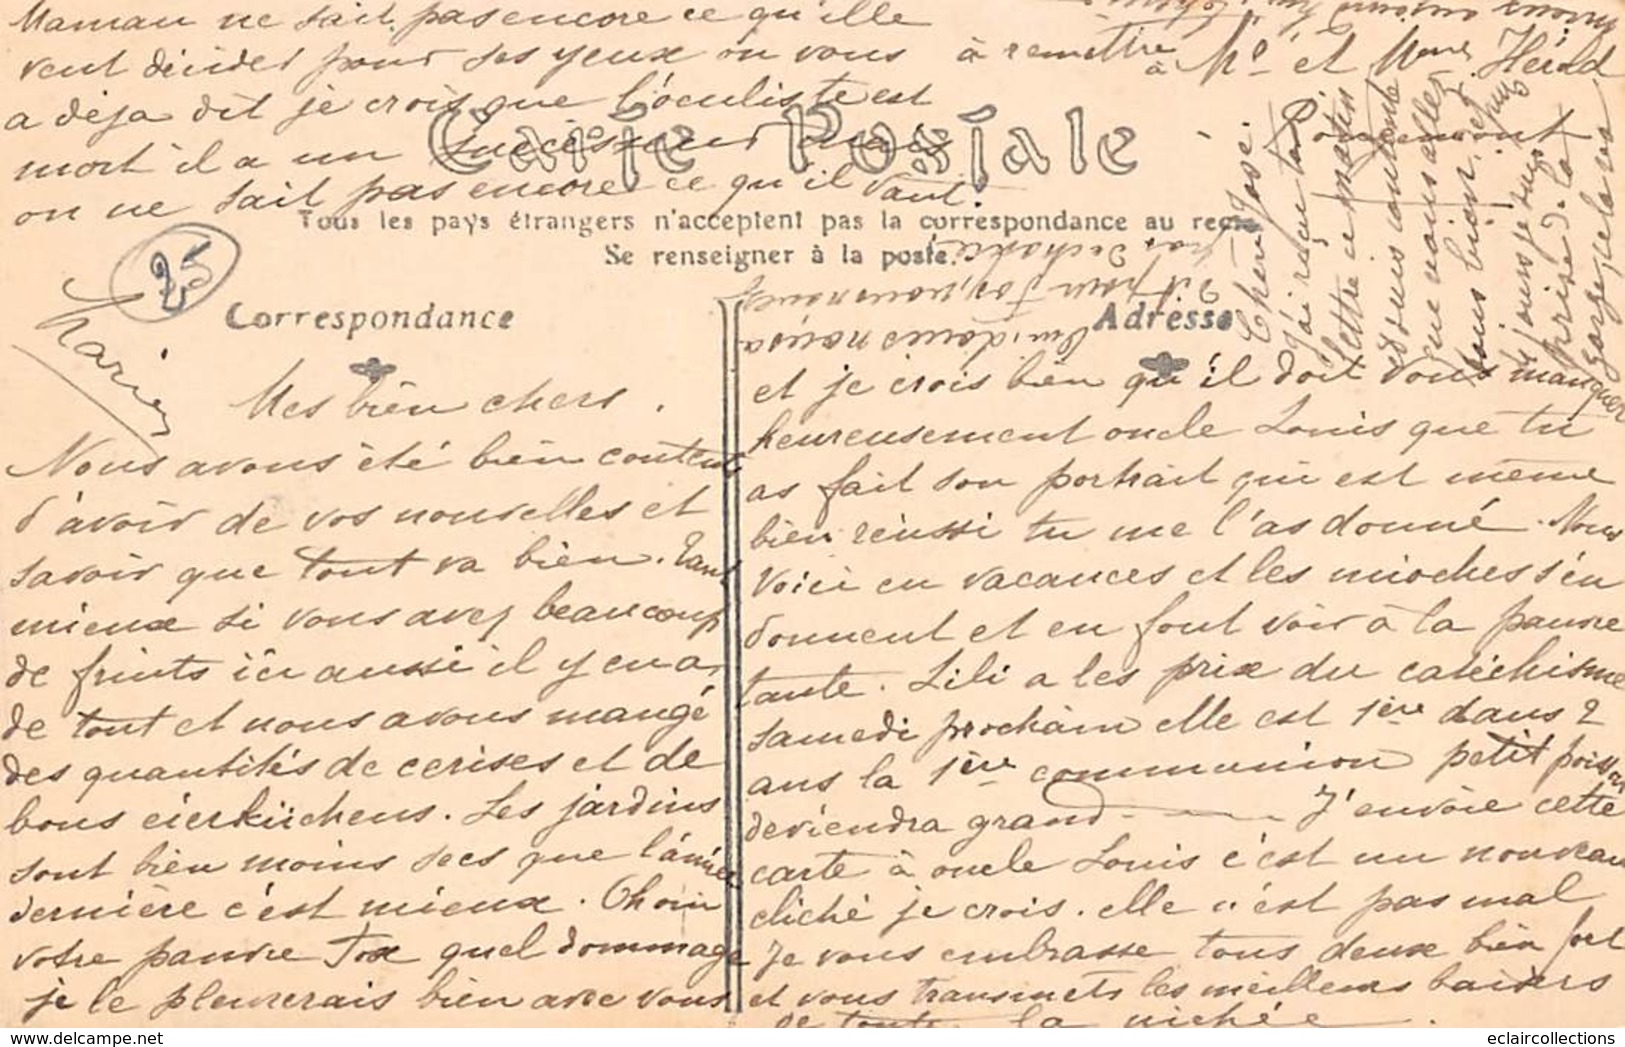 Maman ne sait pas encore ce qu'elle
veut décider pour ses yeux on vous
a déjà dit je crois que l'oculiste est
mort il a un successeur mais
on ne sait pas encore ce qu'il vaut.
à remettre
à Mr et Mme Hérold
Carte Postale
Tous les pays étrangers n'acceptent pas la correspondance au recto
Se renseigner à la poste.
25
Correspondance
Adresse
Cher José.
J'ai reçu ta
lettre ce matin
et suis contente
que vous allez
tous bien, et
Mes bien chers.
Nous avons été bien contents
d'avoir de vos nouvelles et
savoir que tout va bien. Tant
mieux si vous avez beaucoup
de fruits ici aussi il y en a
de tout et nous avons mangé
des quantités de cerises et de
bons eierküchens. Les jardins
sont bien moins secs que l'année
dernière c'est mieux. Oh oui
votre pauvre Fox quel dommage
je le pleurerais bien avec vous
et je crois bien qu'il doit vous manquer
heureusement oncle Louis que tu
as fait son portrait qui est même
bien réussi tu me l'as donné. Nous
voici en vacances et les mioches s'en
donnent et en font voir à la pauvre
tante. Lili a les prix du catéchisme
samedi prochain elle est 1ère dans 2
ans la 1ère communion petit poisson
deviendra grand J'envoie cette
carte à oncle Louis c'est un nouveau
cliché je crois. elle n'est pas mal
Je vous embrasse tous deux bien fort
et vous transmets les meilleurs baisers
de toute la nichée.
eclaircollections